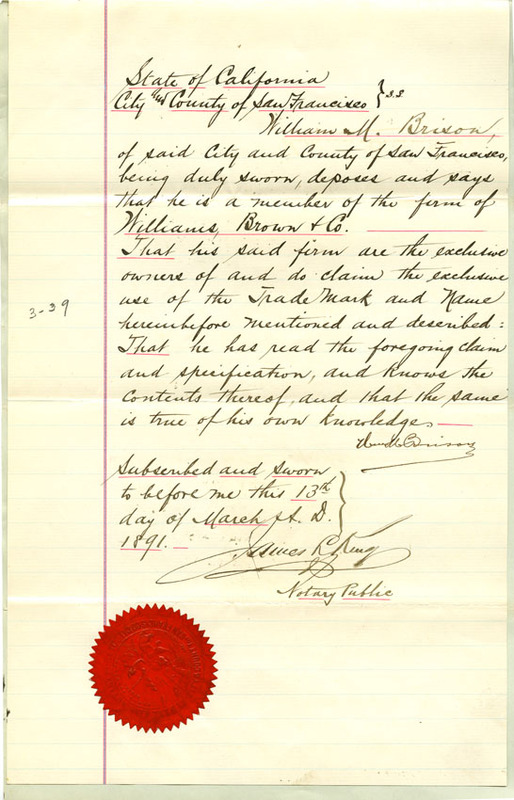 State of California
City and County of San Francisco } ss
William M. Brison,
of said City and County of San Francisco,
being duly sworn, deposes and says
that he is a member of the firm of
Williams, Brown & Co.
That his said firm are the exclusive
owners of and do claim the exclusive
use of the Trade Mark and Name
hereinbefore mentioned and described:
3-39
That he has read the foregoing claim
and specification, and knows the
Contents thereof, and that the same
is true of his own knowledge.
Wm M Brison
Subscribed and sworn
to before me this 13th
day of March A. D.
1891.
James L. King
Notary Public